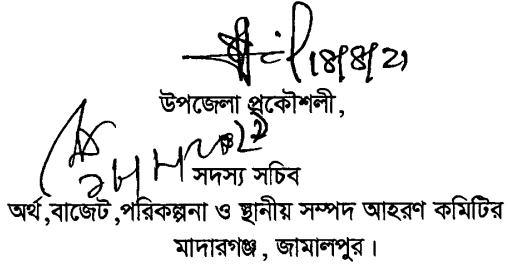 উপজেলা প্রকৌশলী,
সদস্য সচিব
অর্থ,বাজেট,পরিকল্পনা ও স্থানীয় সম্পদ আহরণ কমিটির
মাদারগঞ্জ, জামালপুর।